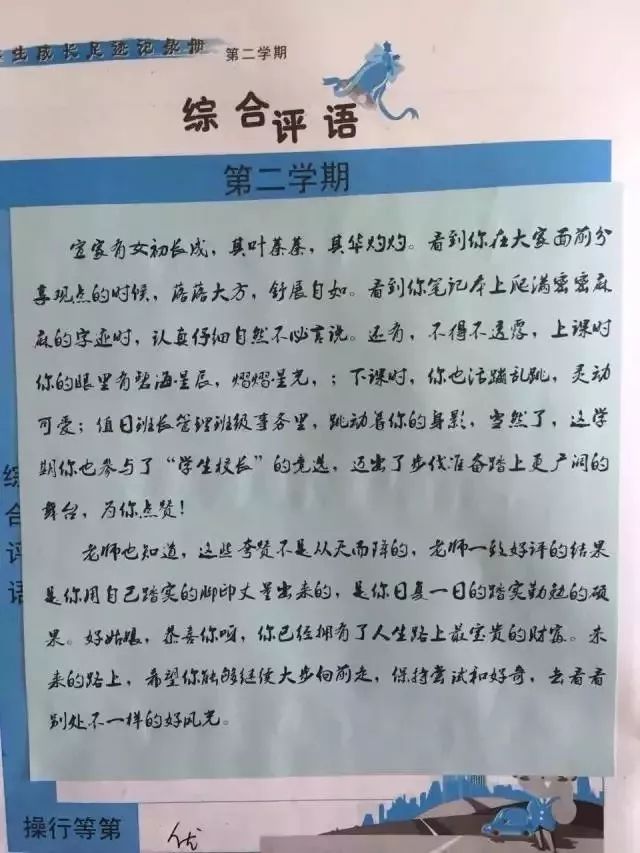 生成长足迹记录册 第二学期
综合评语
第二学期
宜家有女初长成，其叶蓁蓁，其华灼灼。看到你在大家面前分
享观点的时候，落落大方，舒展自如。看到你笔记本上爬满密密麻
麻的字迹时，认真仔细自然不必言说。还有，不得不透露，上课时
你的眼里有碧海星辰，熠熠星光，；下课时，你也活蹦乱跳，灵动
可爱；值日班长管理班级事务里，跳动着你的身影，当然了，这学
期你也参与了“学生校长”的竞选，迈出了步伐准备踏上更广阔的
舞台，为你点赞！
老师也知道，这些夸赞不是从天而降的，老师一致好评的结果
是你用自己踏实的脚印丈量出来的，是你日复一日的踏实勤勉的硕
果。好姑娘，恭喜你呀，你已经拥有了人生路上最宝贵的财富。未
来的路上，希望你能够继续大步向前走，保持尝试和好奇，去看看
别处不一样的好风光。
综合评语
操行等第 优